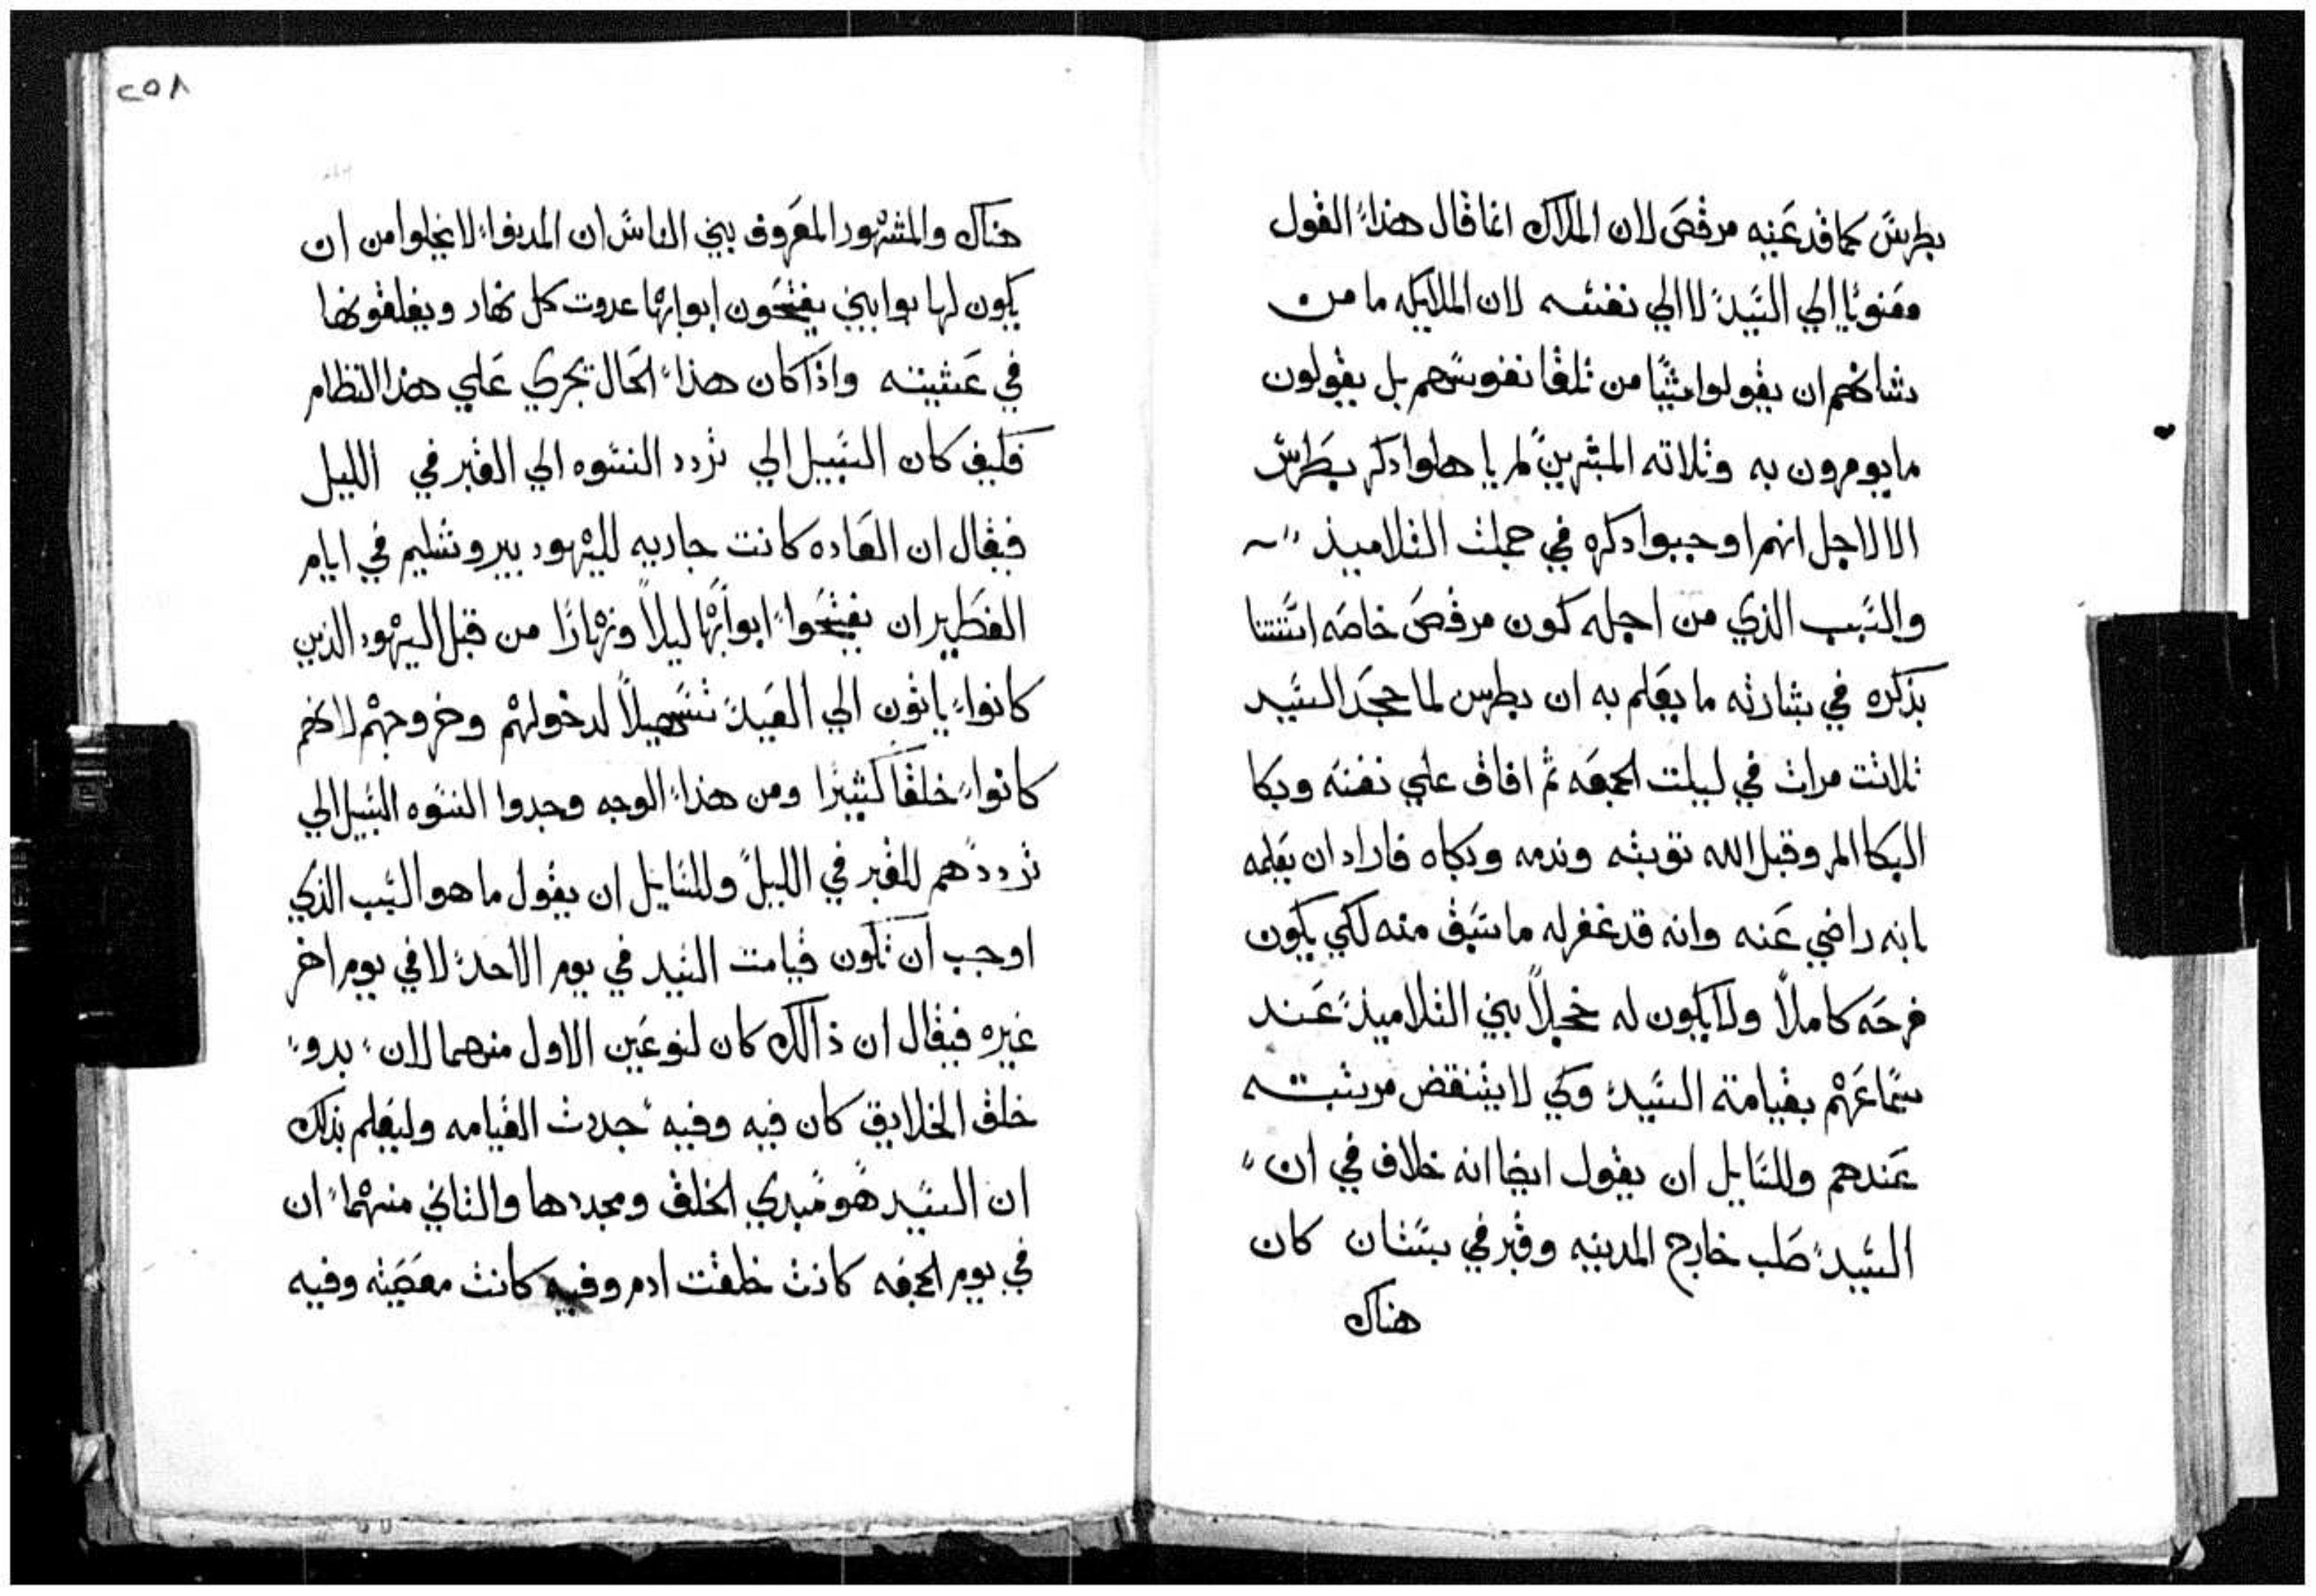 بطرس كما قد عنيه مرقص لان الملاك انما قال هذا القول
معنويًا الي السيد لا الي نفسه لان الملايكه ما من
شانهم ان يقولوا شيًا من تلقا نفوسهم بل يقولون
ما يومرون به وثلاثه المبشرين لم ياهلوا ذكر بطرس
الا لاجل انهم اوجبوا دكره في جملت التلاميذ
والسبب الذي من اجله كون مرقص خاصه استتنا
بذكره في بشارته ما يعلم به ان بطرس لما جحد السيد
ثلاثت مرات في ليلت الجمعه ثم افاق علي نفسه وبكا
البكا المر وقبل الله توبته وندمه وبكاه فاراد ان يعلمه
بانه راضي عنه وانه قد غفر له ما سبق منه لكي يكون
فرحه كاملاً ولا يكون له خجلاً بين التلاميذ عند
سماعهم بقيامة السيد وكي لا يتنقض مرتبته
عندهم وللسايل ان يقول ايضا انه خلاف في ان
السيد صلب خارج المدينه وقبر في بستان كان
هناك
٢٥٨
هناك والمشهور المعروف بين الناس ان المدينوا لا يخلوا من ان
يكون لها بوابين يفتحون ابوابها غدوت كل نهار ويغلقونها
في عشيته واذا كان هذا الحال تجري علي هذا النظام
فكيف كان السبيل الي تردد النسوه الي القبر في الليل
فيقال ان العاده كانت جاريه لليهود بيروشليم في ايام
الفطير ان يفتحوا ابوابها ليلاً ونهارًا من قبل اليهود الذين
كانوا ياتون الي العيد تسهيلاً لدخولهم وخروجهم لانهم
كانوا خلقًا كثيرا ومن هذا الوجه وجدوا النسوه السبيل الي
ترددهم للقبر في الليل وللسايل ان يقول ما هو السبب الذي
اوجب ان تكون قيامت السيد في يوم الاحد لا في يوم اخر
غيره فيقال ان ذالك كان لنوعين الاول منهما لان بدو
خلق الخلايق كان فيه وفيه جددت القيامه وليعلم بذلك
ان السيد هو مبدي الخلق ومجددها والثاني منهما ان
في يوم الجمعه كانت خلقت ادم وفيه كانت معصيته وفيه